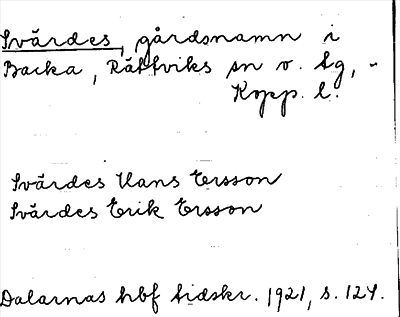 Svärdes, gårdsnamn i
Backa, Rättviks sn o. tg, -
Kopp. l.
Svärdes Hans Ersson
Svärdes Erik Ersson
Dalarnas hbf tidskr. 1921, s. 124.